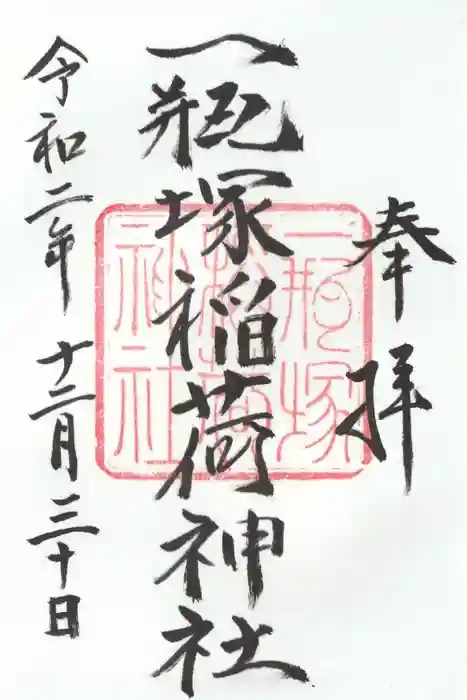 奉拝
一瓶塚稲荷神社
令和二年 十二月三十日
一瓶塚
稲荷
神社